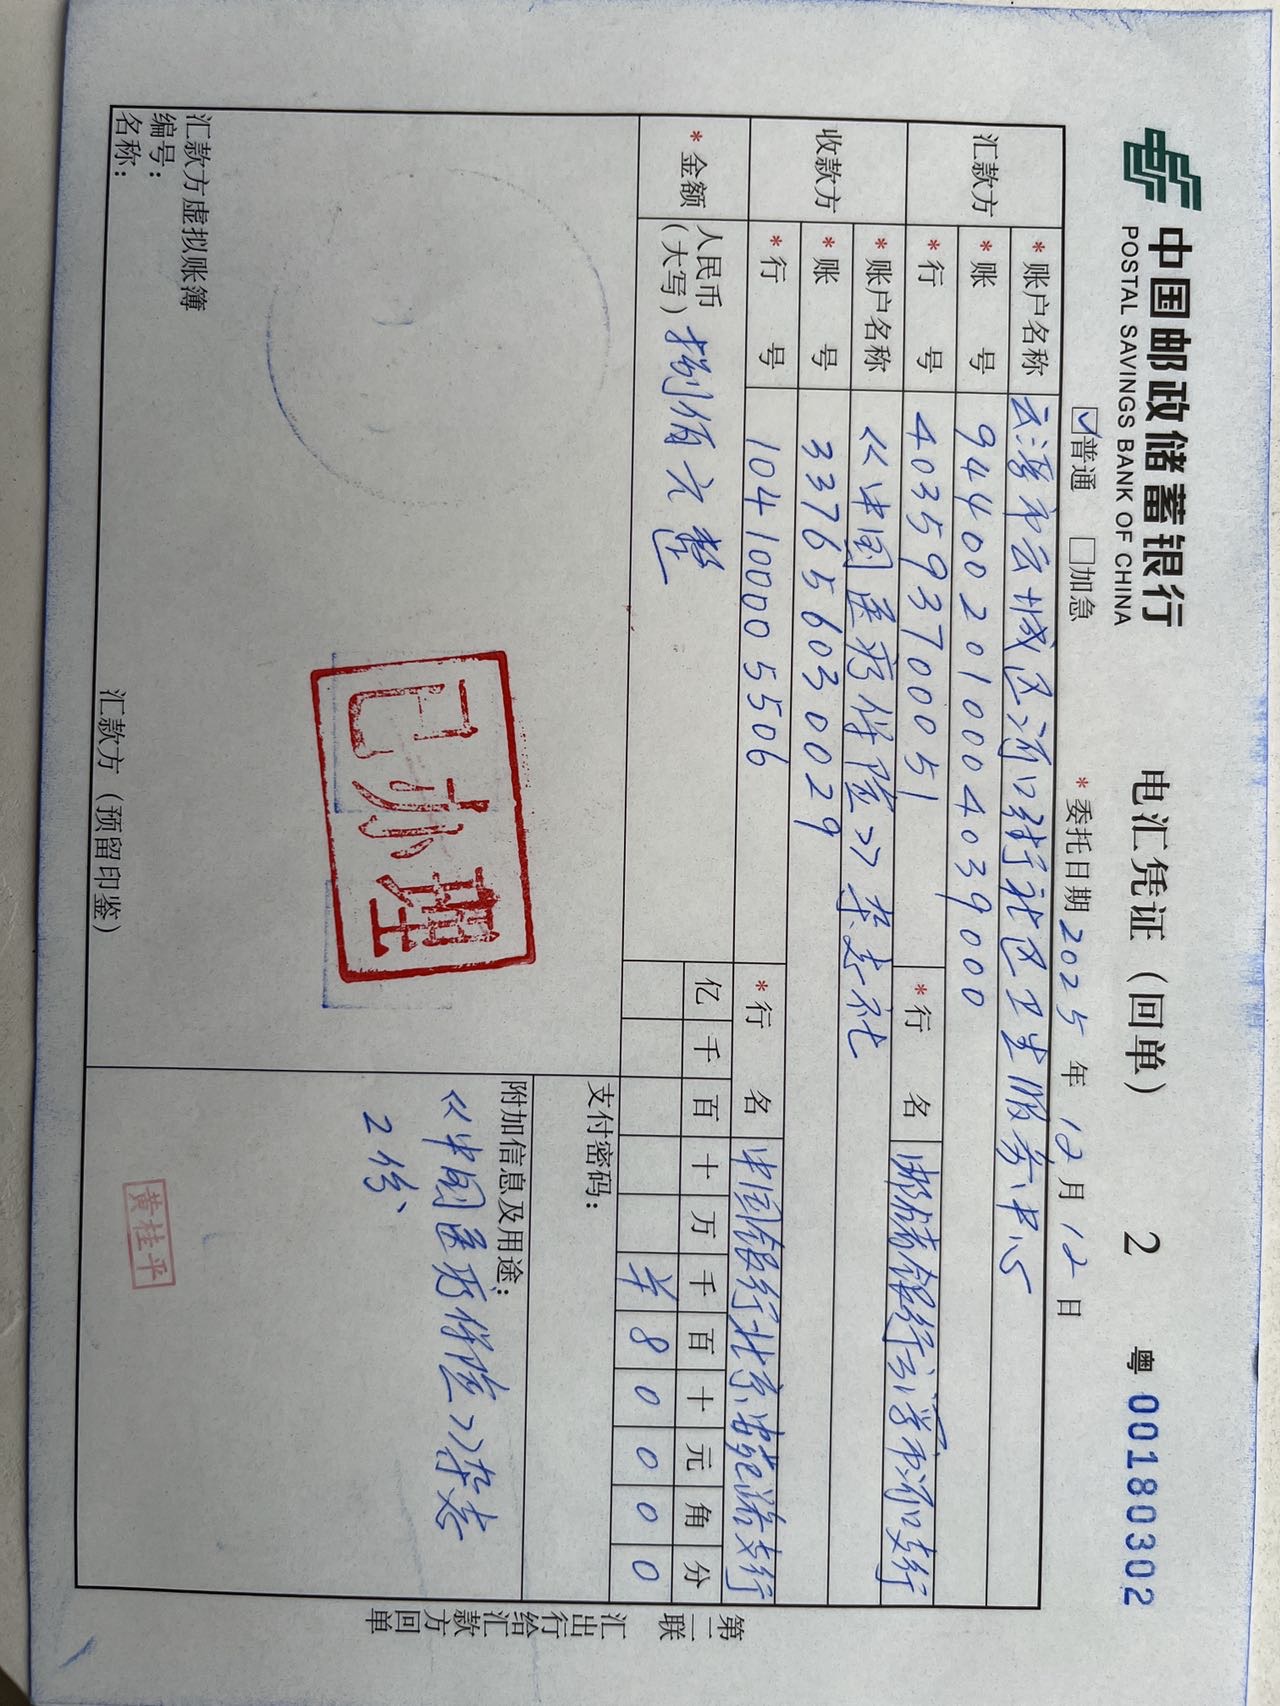 中国邮政储蓄银行
POSTAL SAVINGS BANK OF CHINA
电汇凭证（回单） 2 粤 00180302
☑普通 □加急 *委托日期 2025 年 12 月 12 日
汇款方
*账户名称 云浮市云城区河口街社区卫生服务中心
*账号 944002010004039000
*行号 403593700051 *行名 邮储银行云浮市河口支行
收款方
*账户名称 《中国医疗保险》杂志社
*账号 337656030029
*行号 104100005506 *行名 中国银行北京支行
*金额 人民币（大写） 捌佰元整
亿 千 百 十 万 千 百 十 元 角 分
¥ 8 0 0 0 0
支付密码：
附加信息及用途：
《中国医疗保险》杂志
2份
已办理
黄桂平
汇款方虚拟账簿
编号：
名称：
汇款方（预留印鉴）
第二联
汇出行给汇款方回单